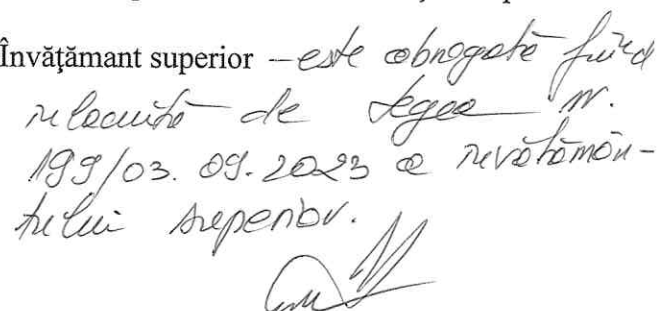 Învăţămant superior – este abrogată fiind
înlocuită de Legea nr.
199/03.09.2023 a învăţămân-
tului superior.